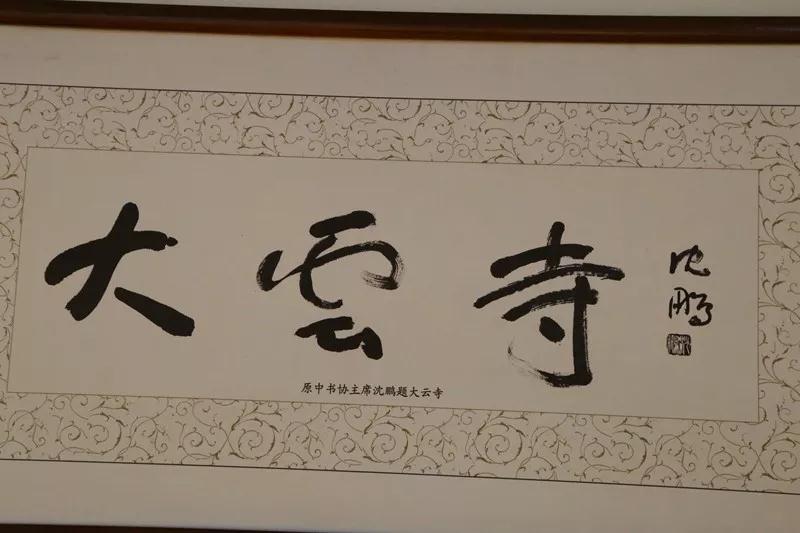 大雲寺
沈鹏
原中书协主席沈鹏题大云寺